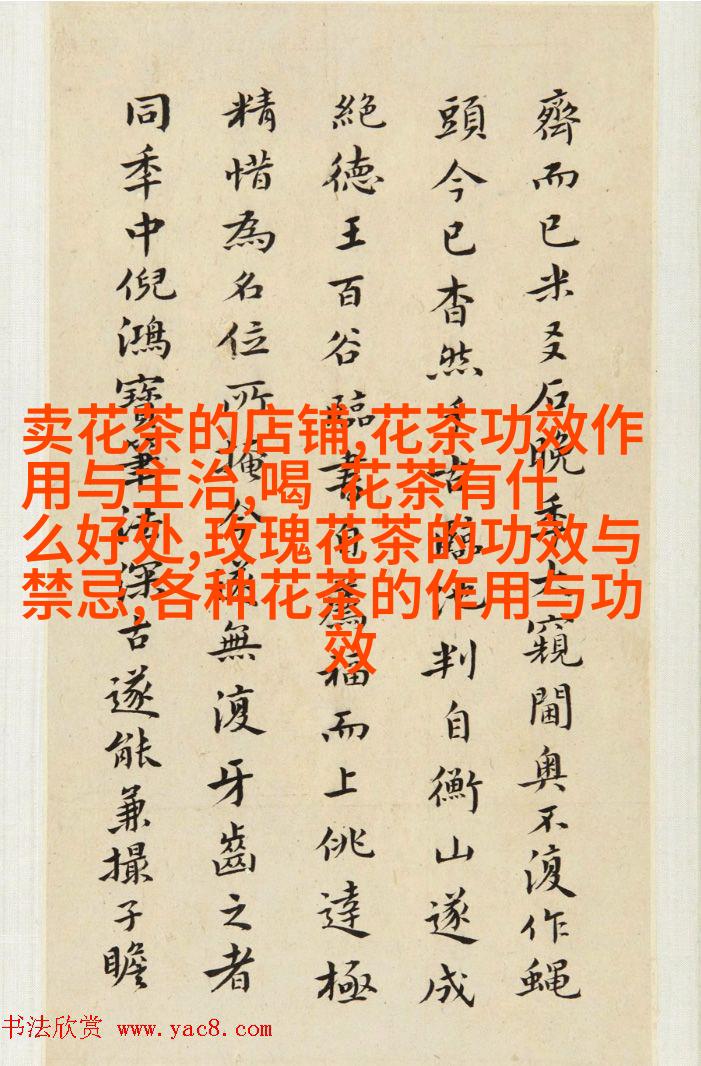 卖花茶的店铺,花茶功效作
用与主治,喝 花茶有什
么好处,玫瑰花茶的功效与
禁忌,各种花茶的作用与功
效
齊而已米友石晚季大窺閫奥不復作蝇
頭今已杳然千古臨池判自衡山遂成
絶德王百谷臨書福而上佻達極
精惜為名位所掩無復牙齒之者
同季中倪鴻寶筆法深古遂能兼撮子瞻
书法欣赏 www.yac8.com